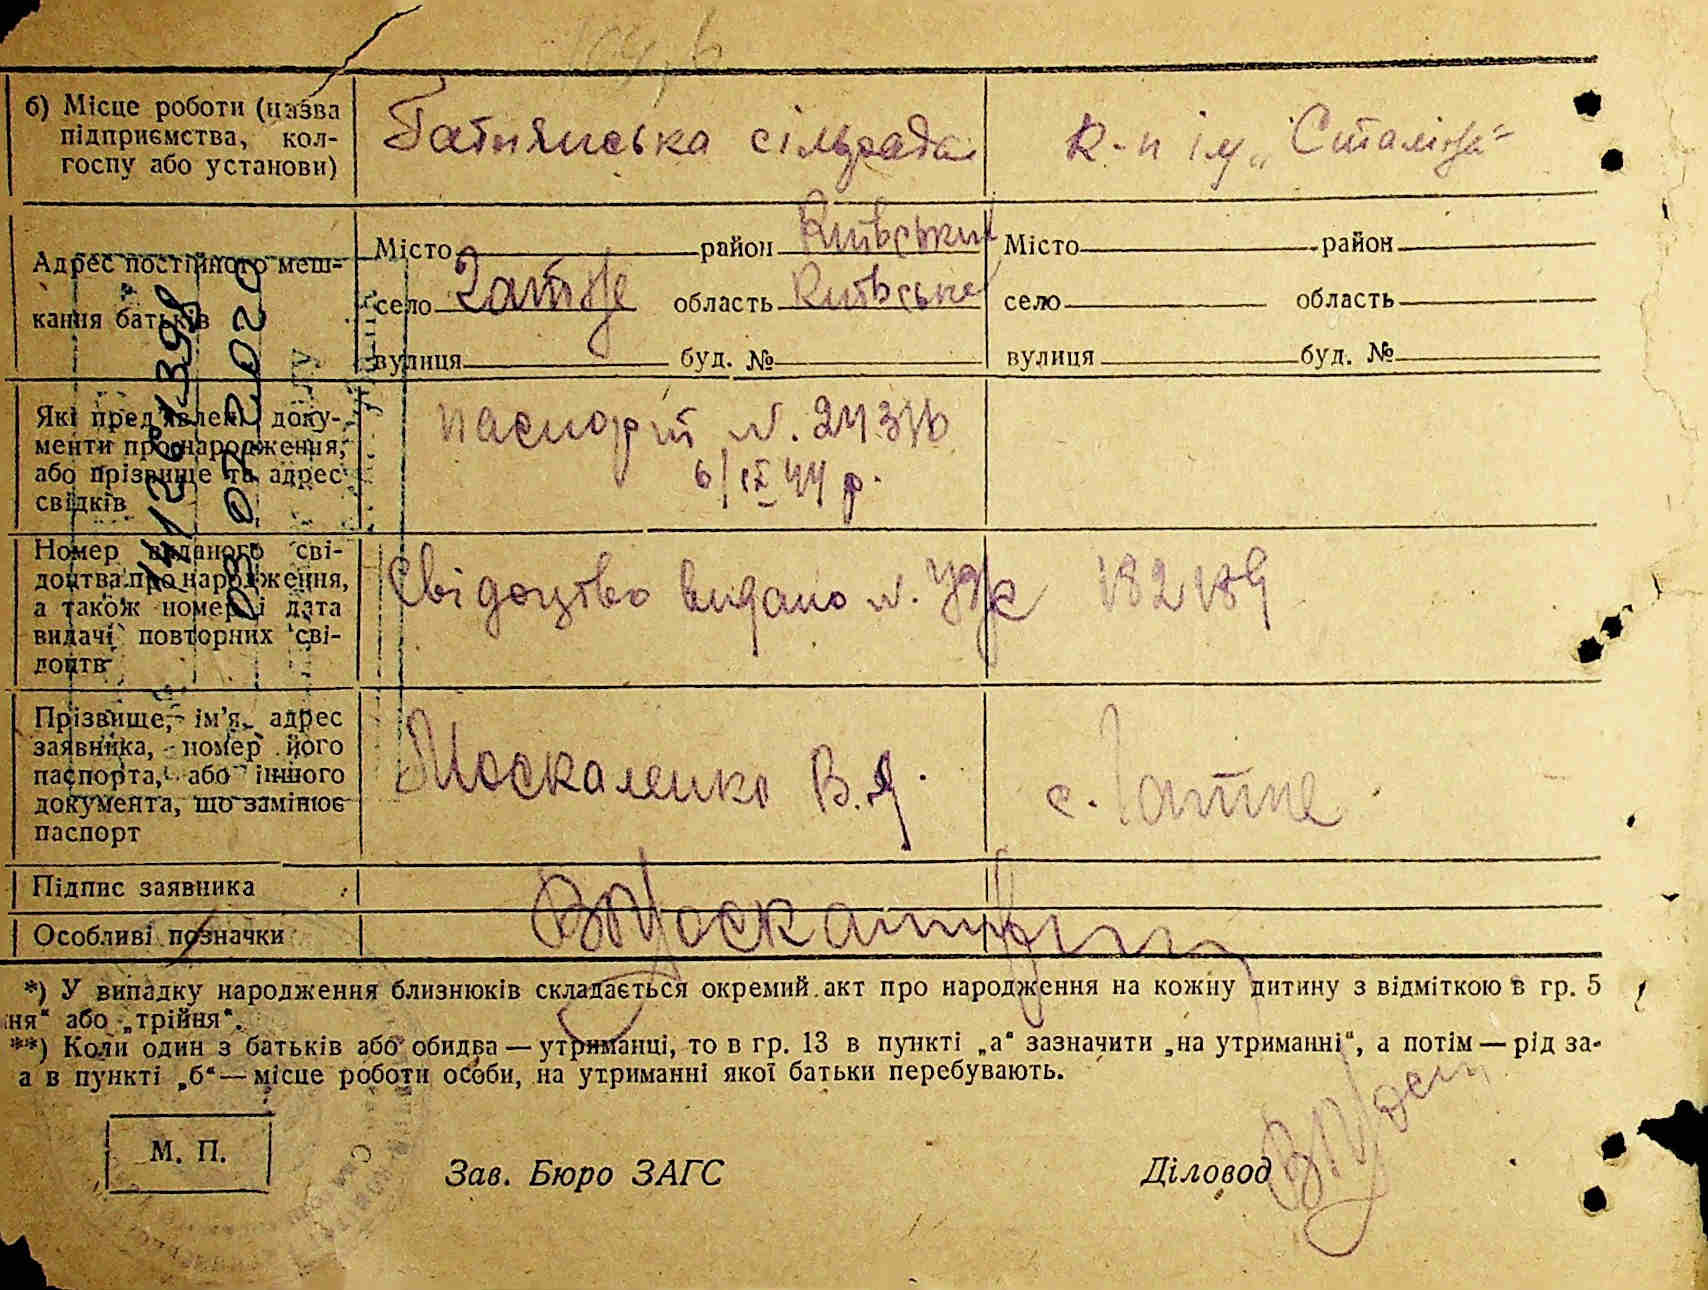 б) Місце роботи (назва
підприємства, кол-
госпу або установи)
Гатнянська сільрада
к-п ім „Сталіна“
Адрес постійного меш-
кання батьків
Місто район Київський
село Гатне область Київська
вулиця буд. №
Місто район
село область
вулиця буд. №
Які пред'явлені доку-
менти про народження,
або прізвище та адрес
свідків
паспорт №.
6/IX 44 р.
Номер виданого сві-
доцтва про народження,
а також номер і дата
видачі повторних сві-
доцтв
Свідоцтво видано №. 182189
Прізвище, ім'я, адрес
заявника, номер його
паспорта, або іншого
документа, що замінює
паспорт
Москаленко В.Я.
с. Гатне
Підпис заявника
Особливі позначки
*) У випадку народження близнюків складається окремий акт про народження на кожну дитину з відміткою в гр. 5
ня“ або „трійня“.
**) Коли один з батьків або обидва — утриманці, то в гр. 13 в пункті „а“ зазначити „на утриманні“, а потім — рід за-
а в пункті „б“ — місце роботи особи, на утриманні якої батьки перебувають.
М. П.
Зав. Бюро ЗАГС
Діловод